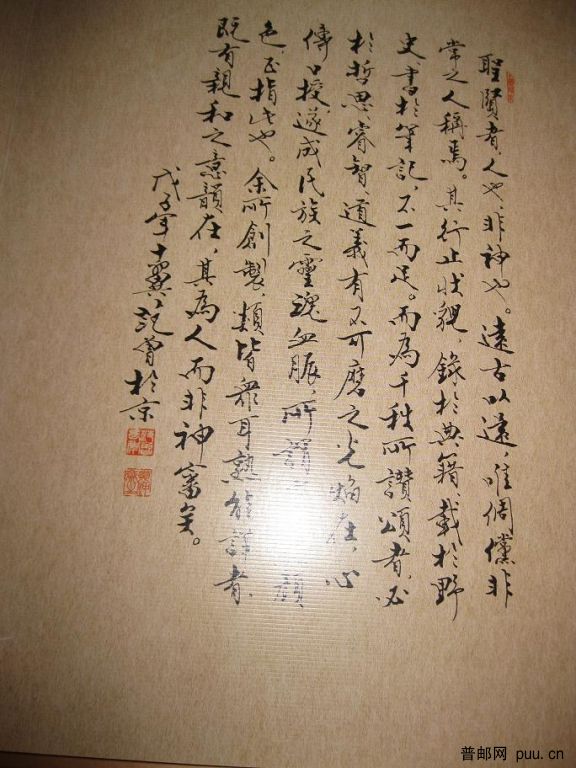 聖賢者,人也,非神也。遠古以遠,唯倜儻非
常之人稱焉。其行止狀貌,錄於典籍、載於野
史、書於筆記,不一而足。而為千秋所讚頌者,必
於哲思、睿智、道義有不可磨之光焰在,心
傳口授,遂成民族之靈魂血脈,所謂顏
色,正指此也。余所創製,類皆眾耳熟能詳者,
既有親和之意韻在,其為人而非神審矣。
戊子年十翼范曾於京
普邮网 puu.cn